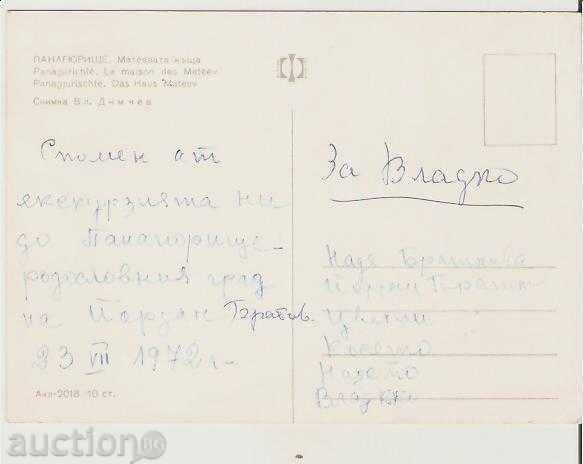 ПАНАГЮРИЩЕ. Матеевата къща
Panagurichté. La maison des Mateev
Panagjurischte. Das Haus Mateev
Снимка Вл. Димчев
Спомен от
екскурзията ни
до Панагюрище –
родословния град
на Йордан Гератов.
23 VII 1972 г.
Акл-2018 10 ст.
За Владко
Надя
Цветли
Косето
Надето
Владко
auction BG